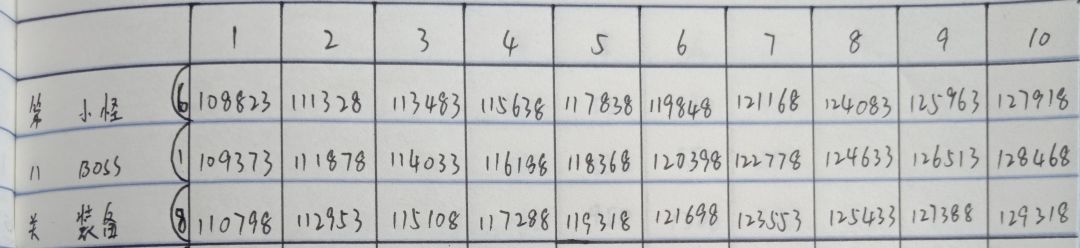 1 2 3 4 5 6 7 8 9 10
第 小怪 6 108823 111328 113483 115638 117838 119848 121168 124083 125963 127918
11 BOSS 1 109373 111878 114033 116198 118368 120398 122778 124633 126513 128468
关 装备 8 110798 112953 115108 117288 119318 121698 123553 125433 127388 129318